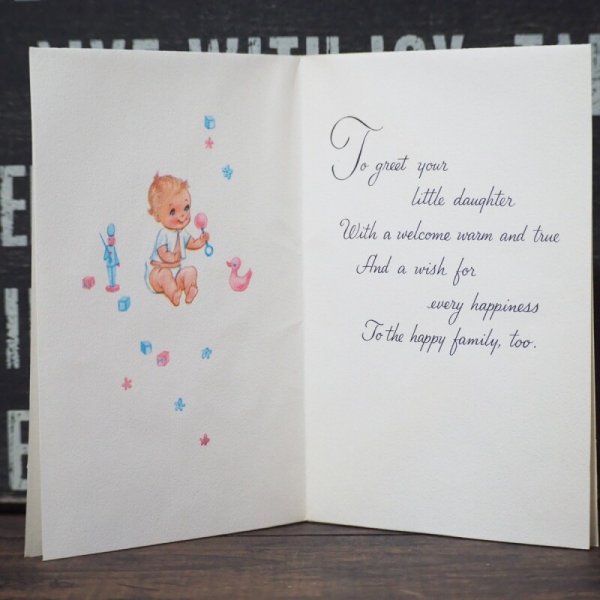 LIVE WITH JOY,
To greet your
little daughter
With a welcome warm and true
And a wish for
every happiness
To the happy family, too.